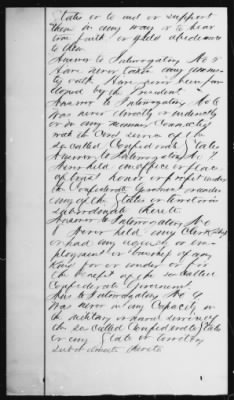 States or to aid or support
them in any way or to bear
true faith or yield obedience
to them.
Answer to Interrogatory No 5
have never taken any
oath have never been par
doned by the President
Answer to Interrogatory No 6
Was never directly or indirectly
or in any manner connected
with the Civil service of the
so called Confederate States
Answer to Interrogatory No 7
Never held an office or place
of trust honor or profit under
the Confederate Government or under
any of the States or territories
subordinate thereto
Answer to Interrogatory No 8
I Never held any Clerkship
or had any agency or em
ployment or of any
kind for or under or for
the benefit of the so called
Confederate Government.
Ans to Interrogatory No 9
Was never in any Capacity in
the military or naval service of
the so called Confederate States
or any State or territory
subordinate thereto